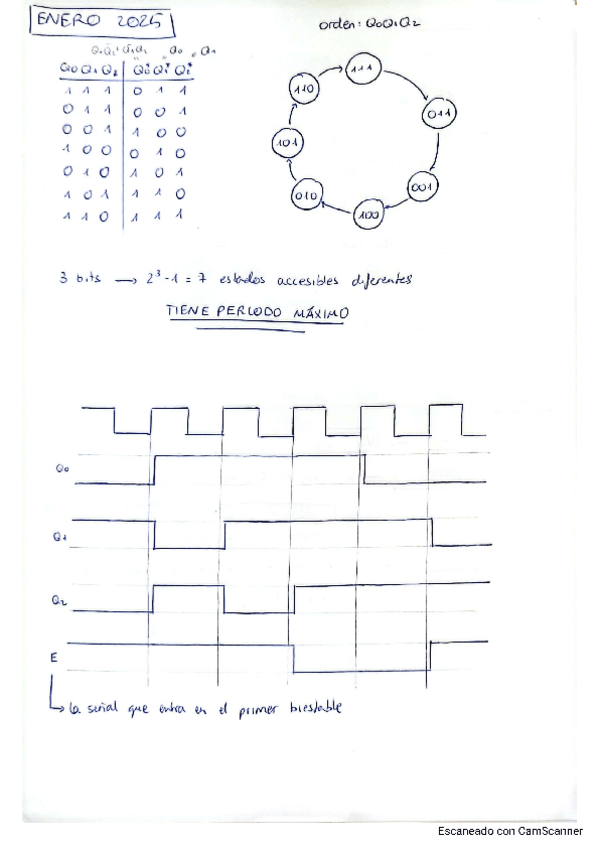 ENERO 2025
orden: Q0Q1Q2
Q0 Q1 Q2 Q0* Q1* Q2*
1 1 1 0 1 1
0 1 1 0 0 1
0 0 1 1 0 0
1 0 0 0 1 0
0 1 0 1 0 1
1 0 1 1 1 0
1 1 0 1 1 1
111
110
011
101
001
010
100
3 bits → 2³-1 = 7 estados accesibles diferentes
TIENE PERIODO MÁXIMO
Q0
Q1
Q2
E
↳ la señal que entra en el primer biestable
Escaneado con CamScanner